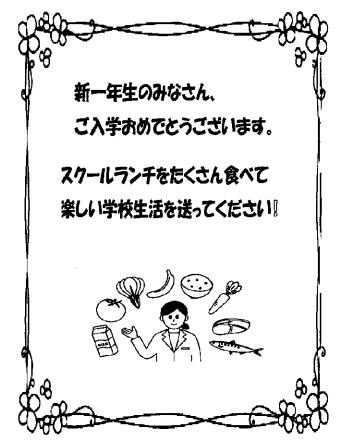 新一年生のみなさん、
ご入学おめでとうございます。
スクールランチをたくさん食べて
楽しい学校生活を送ってください!